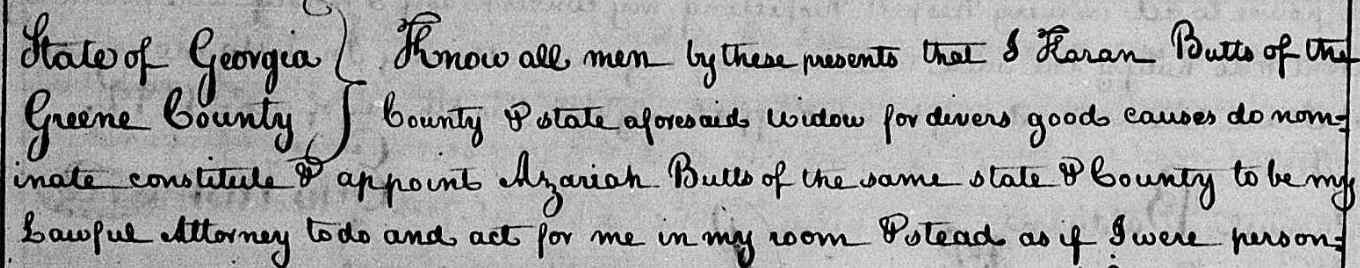 State of Georgia } Know all men by these presents that I Karan Butts of the
Greene County } County & state aforesaid widow for divers good causes do nom=
inate constitute & appoint Azariah Butts of the same state & County to be my
Lawful Attorney to do and act for me in my room & stead as if I were person=